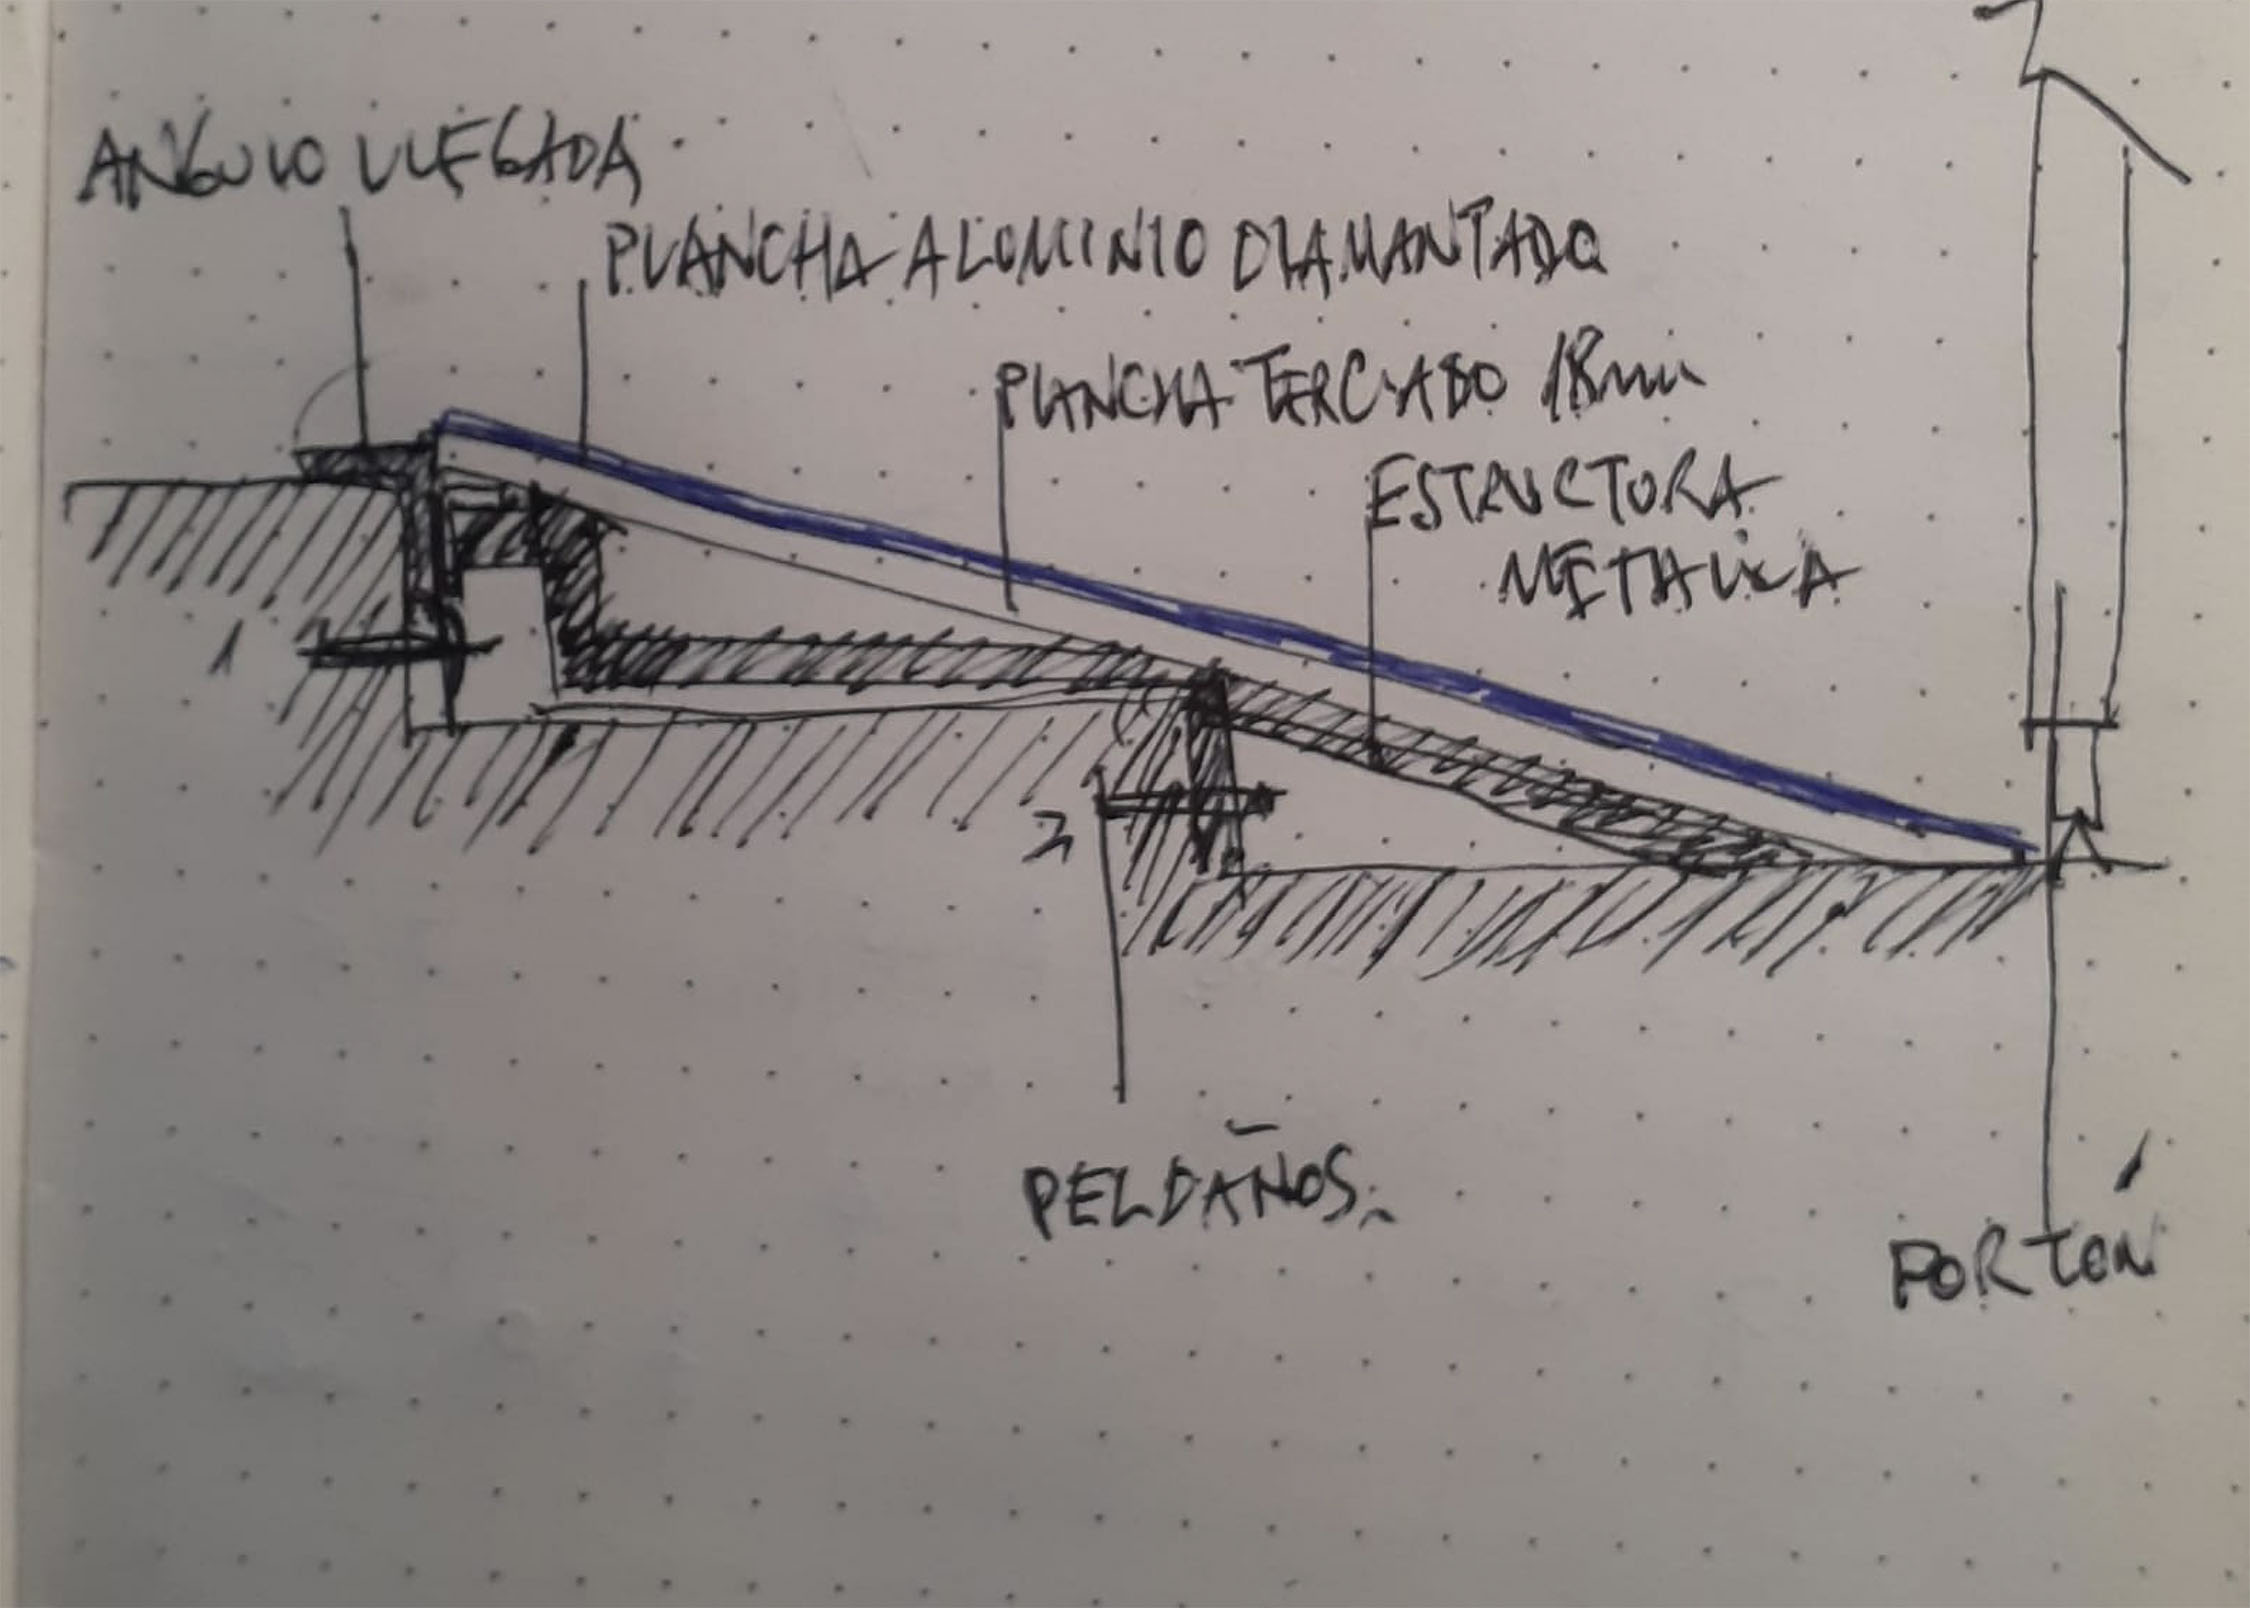 ANGULO LLEGADA
PLANCHA ALUMINIO DIAMANTADO
PLANCHA TERCIADO 18mm
ESTRUCTURA
METALICA
1
2
PELDAÑOS
PORTÓN